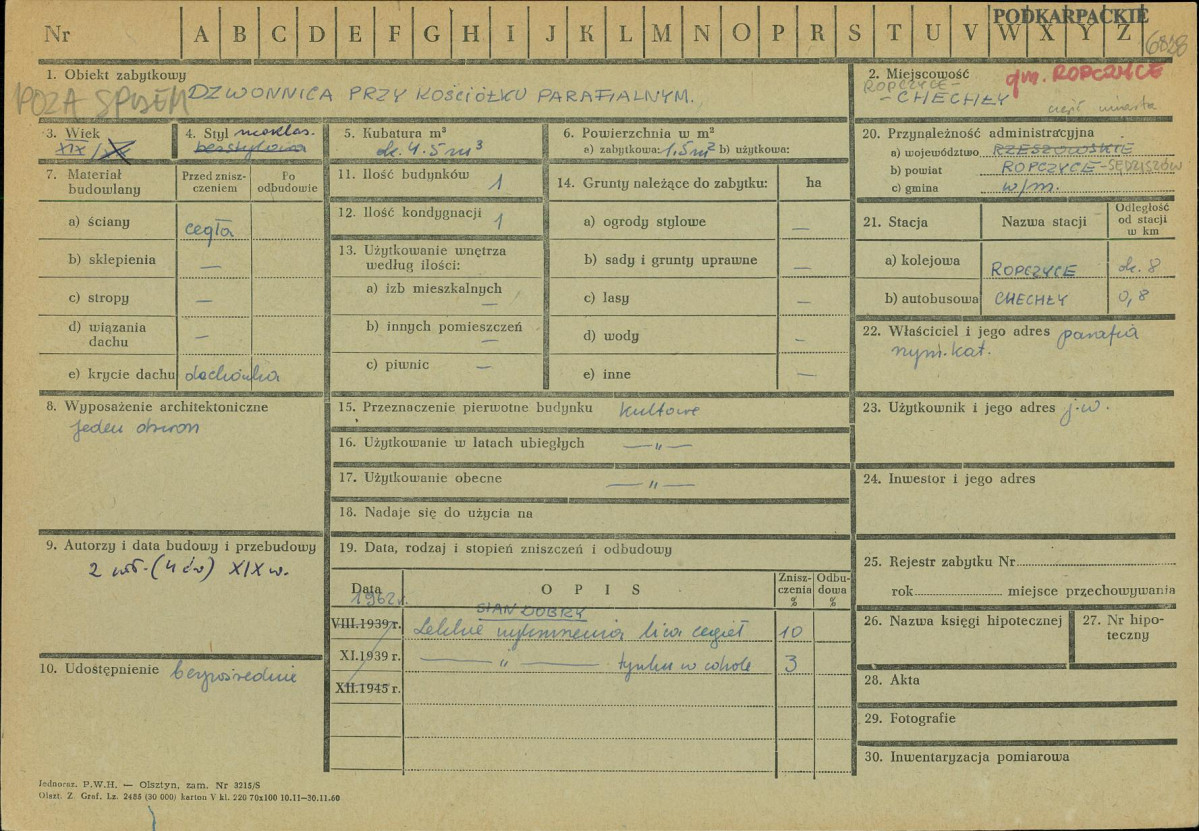 PODKARPACKIE
Nr A B C D E F G H I J K L M N O P R S T U V W X Y Z 6828
1. Obiekt zabytkowy
POZA SPISEM
DZWONNICA PRZY KOŚCIÓŁKU PARAFIALNYM.
2. Miejscowość
gm. ROPCZYCE
ROPCZYCE-
- CHECHŁY
część miasta
3. Wiek
XIX/XX
4. Styl neoklas.
bezstylowa
5. Kubatura m³
ok. 4.5 m³
6. Powierzchnia w m²
a) zabytkowa: 1,5m² b) użytkowa:
20. Przynależność administracyjna
a) województwo RZESZOWSKIE
b) powiat ROPCZYCE-SĘDZISZÓW
c) gmina w/m.
7. Materiał budowlany
Przed zniszczeniem
Po odbudowie
a) ściany cegła
b) sklepienia —
c) stropy —
d) wiązania dachu —
e) krycie dachu dachówka
11. Ilość budynków 1
12. Ilość kondygnacji 1
13. Użytkowanie wnętrza według ilości:
a) izb mieszkalnych —
b) innych pomieszczeń —
c) piwnic —
14. Grunty należące do zabytku: ha
a) ogrody stylowe —
b) sady i grunty uprawne —
c) lasy —
d) wody —
e) inne —
21. Stacja
Nazwa stacji
Odległość od stacji w km
a) kolejowa ROPCZYCE ok. 8
b) autobusowa CHECHŁY 0,8
22. Właściciel i jego adres parafia
rzym. kat.
8. Wyposażenie architektoniczne
jeden dzwon
15. Przeznaczenie pierwotne budynku kultowe
16. Użytkowanie w latach ubiegłych — " —
17. Użytkowanie obecne — " —
18. Nadaje się do użycia na
23. Użytkownik i jego adres j.w.
24. Inwestor i jego adres
9. Autorzy i data budowy i przebudowy
2 poł. (4 ćw) XIX w.
19. Data, rodzaj i stopień zniszczeń i odbudowy
Data
OPIS
Zniszczenia %
Odbudowa %
1962 r.
STAN DOBRY
VIII.1939 r. Lekkie wykruszenia lica cegieł 10
XI.1939 r. — " — tynku w cokole 3
XII.1945 r.
25. Rejestr zabytku Nr
rok miejsce przechowywania
26. Nazwa księgi hipotecznej
27. Nr hipoteczny
10. Udostępnienie bezpośrednie
28. Akta
29. Fotografie
30. Inwentaryzacja pomiarowa
Jednoraz. P.W.H. — Olsztyn, zam. Nr 3215/S
Olszt. Z. Graf. Lz. 2485 (30 000) karton V kl. 220 70x100 10.11—30.11.60